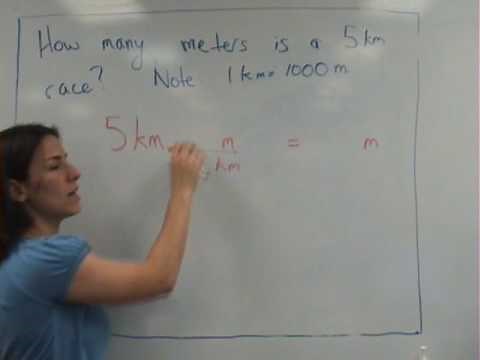 How many meters is a 5 km
race? Note 1 km = 1000 m
5 km m = m
km